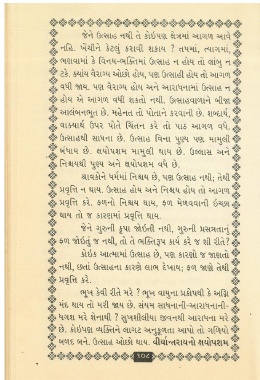 જેને ઉત્સાહ નથી તે કોઈપણ ક્ષેત્રમાં આગળ આવે
નહિ. ખેંચીને કેટલું કરાવી શકાય ? તપમાં, ત્યાગમાં,
ભણવામાં કે વિનય-ભક્તિમાં ઉત્સાહ ન હોય તો લાંબુ ન
ટકે. ક્યાંય વૈરાગ્ય ઓછો હોય, પણ ઉત્સાહી હોય તો આગળ
વધી જાય. પણ વૈરાગ્ય હોય અને આરાધનામાં ઉત્સાહ ન
હોય એ આગળ વધી શકતો નથી. ઉત્સાહવાળાને બીજા
આલંબનભૂત છે. મહેનત તો પોતાને કરવાની છે. શબ્દાર્થ,
વાક્યાર્થ ઉપર પોતે ચિંતન કરે તો પાઠ આગળ વધે.
ઉત્સાહથી સાધના છે. ઉત્સાહ વિના પુણ્ય પણ મામુલી
બંધાય છે. ક્ષયોપશમ મામુલી થાય છે. ઉલ્લાસ અને
નિશ્ચયથી પુણ્ય અને ક્ષયોપશમ વધે છે.
શ્રાવકોને ધર્મમાં નિશ્ચય છે, પણ ઉત્સાહ નથી; તેથી
પ્રવૃત્તિ ન થાય. ઉત્સાહ હોય અને નિશ્ચય હોય તો આગળ
પ્રવૃત્તિ કરે. ફળનો નિશ્ચય થાય, ફળ મેળવવાની ઇચ્છા
થાય તો જ કારણમાં પ્રવૃત્તિ થાય.
જેને ગુરુની કૃપા જોઈતી નથી, ગુરુની પ્રસન્નતાનું
ફળ જોઈતું જ નથી, તો તે ભક્તિરૂપ કાર્ય કરે જ શી રીતે?
કોઈક આત્મામાં ઉત્સાહ છે, પણ કારણો જ જાણતો
નથી, છતાં ઉત્સાહના કારણે લાભ દેખાય; ફળ જાણે તેથી
પ્રવૃત્તિ કરે.
ભૂખ કેવી રીતે મરે ? ભૂખ વાયુના પ્રકોપથી કે અગ્નિ
મંદ થાય તો મરી જાય છે. સંયમ સાધનાની-આરાધનાની-
યગશ મરે શેનાથી ? સુખશીલીયા જીવનથી આરાધના મરે
છે. કોઈપણ વ્યક્તિને લાગટ અનુકૂળતા આપો તો ગળિયો
બળદ બને. ઉત્સાહ ઓછો થાય. વીર્યાન્તરાયનો ક્ષયોપશમ